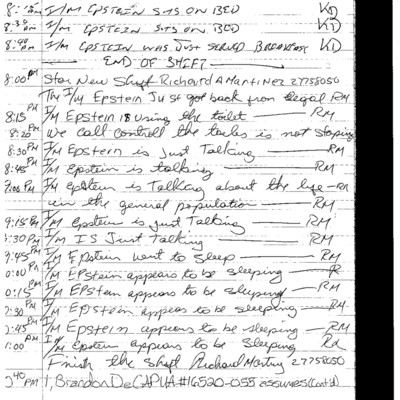 8:15am I/M EPSTEIN SITS ON BED KD
8:30am I/M EPSTEIN SITS ON BED KD
8:40am I/M EPSTEIN WAS JUST SERVED BREAKFAST KD
END OF SHIFT
8:00PM Star New Shift Richard A Martinez 27758050
The I/M Epstein Just got back from legal RM
8:15 PM I/M Epstein is using the toilet RM
8:20 PM we call controll the toilet is not stoping
8:30PM I/M Epstein is Just Talking RM
8:45 PM I/M Epstein is talking RM
9:00 PM I/M epstein is Talking about the life
in the general population RM
9:15PM I/M Epstein is just Talking RM
:30PM I/M IS Just Talking RM
9:45PM I/M Epstein went to Sleep RM
0:00 PM I/M EPStein appears to be sleeping R
0:15 PM I/M EPStein appears to be sleeping RM
:30 PM I/M EPStein appears to be sleeping RM
:45 PM I/M Epstein appears to be sleeping RM
1:00 PM I/M Epstein appears to be Sleeping
Finish the Shift Richard 27758050
:40 PM I, Brandon DeCAPUA #16520-055 assumes (Cont'd)